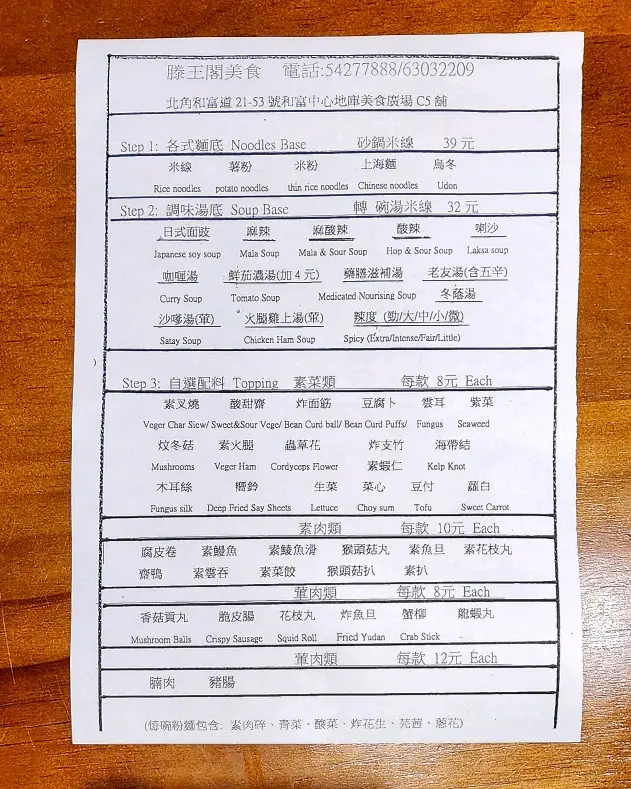 滕王閣美食 電話:54277888/63032209
北角和富道 21-53 號和富中心地庫美食廣場 C5 舖
Step 1: 各式麵底 Noodles Base 砂鍋米線 39 元
米線 薯粉 米粉 上海麵 烏冬
Rice noodles potato noodles thin rice noodles Chinese noodles Udon
Step 2: 調味湯底 Soup Base 轉 碗湯米線 32 元
日式面豉 麻辣 麻酸辣 酸辣 喇沙
Japanese soy soup Mala Soup Mala & Sour Soup Hop & Sour Soup Laksa soup
咖喱湯 鮮茄濃湯(加 4 元) 藥膳滋補湯 老友湯(含五辛)
Curry Soup Tomato Soup Medicated Nourising Soup 冬蔭湯
沙嗲湯(葷) 火腿雞上湯(葷) 辣度 (勁/大/中/小/微)
Satay Soup Chicken Ham Soup Spicy (Extra/Intense/Fair/Little)
Step 3: 自選配料 Topping 素菜類 每款 8元 Each
素叉燒 酸甜齋 炸面筋 豆腐卜 雲耳 紫菜
Veger Char Siew/ Sweet&Sour Vege/ Bean Curd ball/ Bean Curd Puffs/ Fungus Seaweed
炆冬菇 素火腿 蟲草花 炸支竹 海帶結
Mushrooms Veger Ham Cordyceps Flower 素蝦仁 Kelp Knot
木耳絲 響鈴 生菜 菜心 豆付 蘿白
Fungus silk Deep Fried Say Sheets Lettuce Choy sum Tofu Sweet Carrot
素肉類 每款 10元 Each
腐皮卷 素鰻魚 素鯪魚滑 猴頭菇丸 素魚旦 素花枝丸
齋鴨 素雲吞 素菜餃 猴頭菇扒 素扒
葷肉類 每款 8元 Each
香菇貢丸 脆皮腸 花枝丸 炸魚旦 蟹柳 龍蝦丸
Mushroom Balls Crispy Sausage Squid Roll Fried Yudan Crab Stick
葷肉類 每款 12元 Each
腩肉 豬腸
(每碗粉麵包含: 素肉碎、青菜、酸菜、炸花生、芫茜、蔥花)